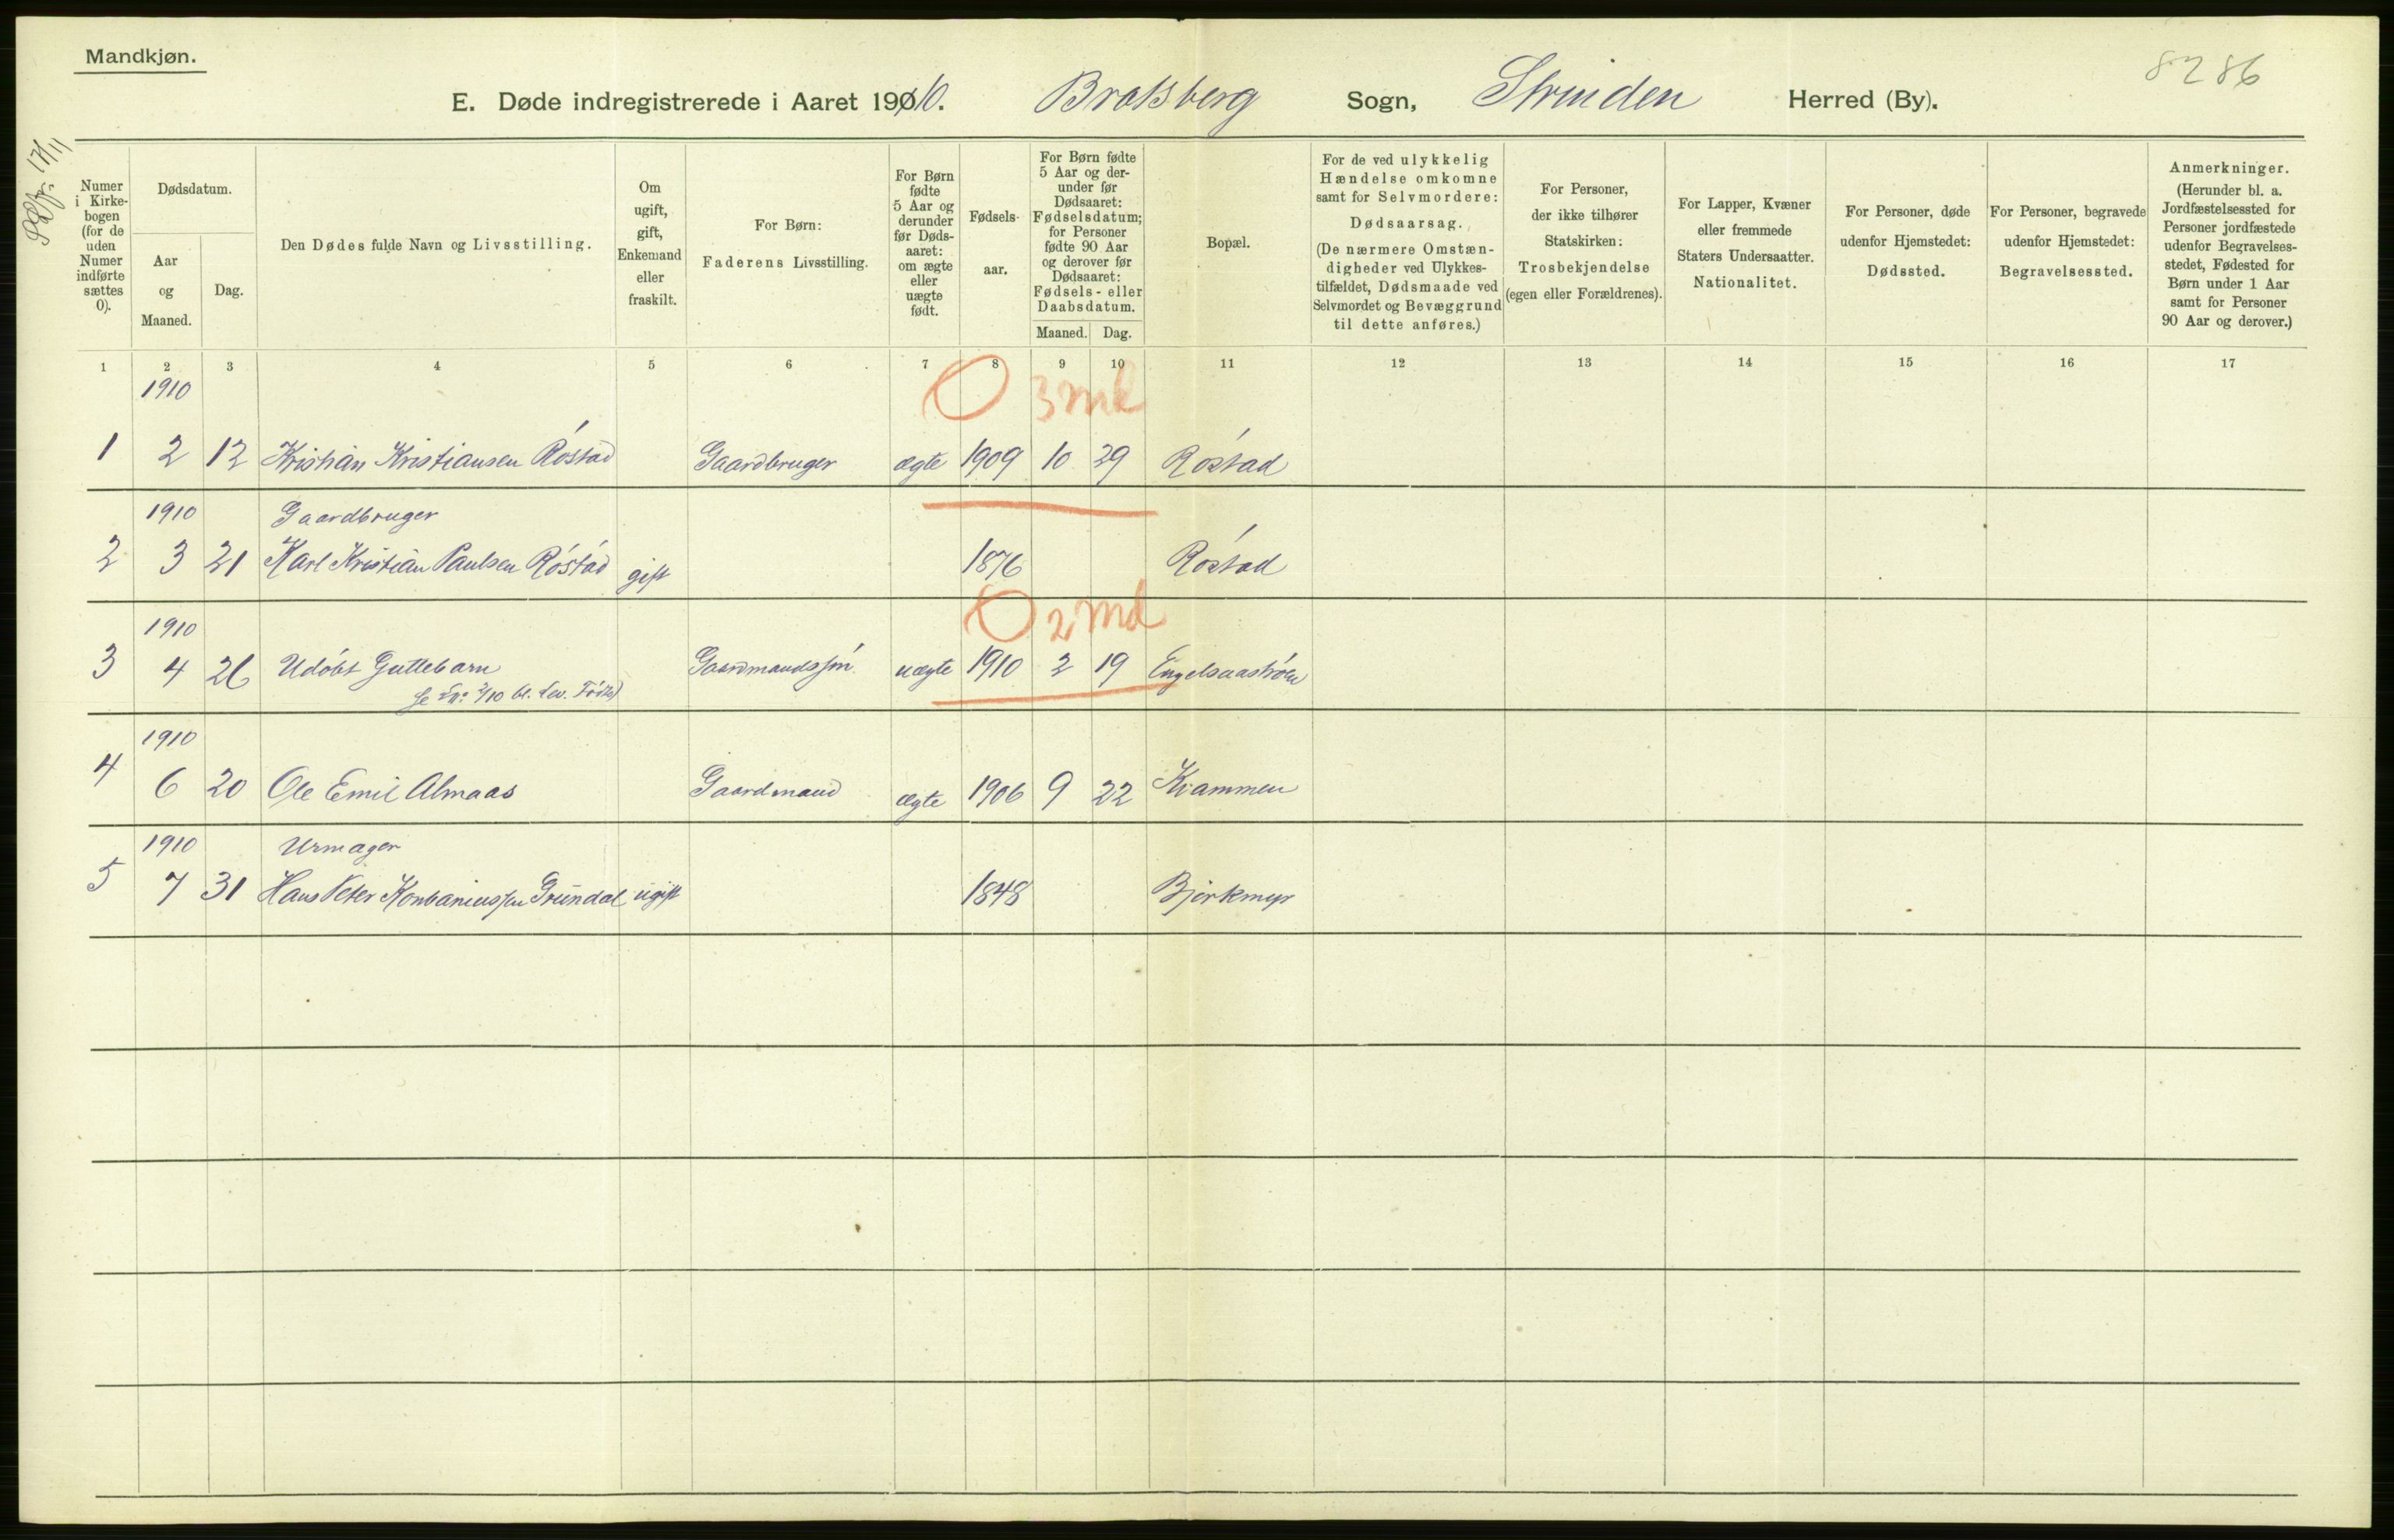 Mandkjøn.
8286
E. Døde indregistrerede i Aaret 1910. Bratsberg Sogn, Strinden Herred (By).
Numer i Kirke-bogen (for de uden Numer indførte sættes 0).
Dødsdatum.
Aar og Maaned.
Dag.
Den Dødes fulde Navn og Livsstilling.
Om ugift, gift, Enkemand eller fraskilt.
For Børn: Faderens Livsstilling.
For Børn fødte 5 Aar og derunder før Døds-aaret: om ægte eller uægte født.
Fødsels-aar.
For Børn fødte 5 Aar og der-under før Dødsaaret: Fødselsdatum; for Personer fødte 90 Aar og derover før Dødsaaret: Fødsels- eller Daabsdatum.
Maaned. Dag.
Bopæl.
For de ved ulykkelig Hændelse omkomne samt for Selvmordere: Dødsaarsag. (De nærmere Omstæn-digheder ved Ulykkes-tilfældet, Dødsmaade ved Selvmordet og Bevæggrund til dette anføres.)
For Personer, der ikke tilhører Statskirken: Trosbekjendelse (egen eller Forældrenes).
For Lapper, Kvæner eller fremmede Staters Undersaatter. Nationalitet.
For Personer, døde udenfor Hjemstedet: Dødssted.
For Personer, begravede udenfor Hjemstedet: Begravelsessted.
Anmerkninger. (Herunder bl. a. Jordfæstelsessted for Personer jordfæstede udenfor Begravelses-stedet, Fødested for Børn under 1 Aar samt for Personer 90 Aar og derover.)
1 2 3 4 5 6 7 8 9 10 11 12 13 14 15 16 17
1910 0 3 md
1 2 12 Kristian Kristiansen Róstad Gaardbruger ægte 1909 10 29 Róstad
1910 Gaardbruger
2 3 21 Karl Kristian Paulsen Róstad gift 1876 Róstad
1910 0 2 md
3 4 26 Udóbt Guttebarn Gaardmandssón uægte 1910 2 19
se
1910
4 6 20 Ole Emil Almaas Gaardmand ægte 1906 9 22 Kvammen
1910 Urmager
5 7 31 Hans Peter Grundal ugift 1848 Bjørkmyr